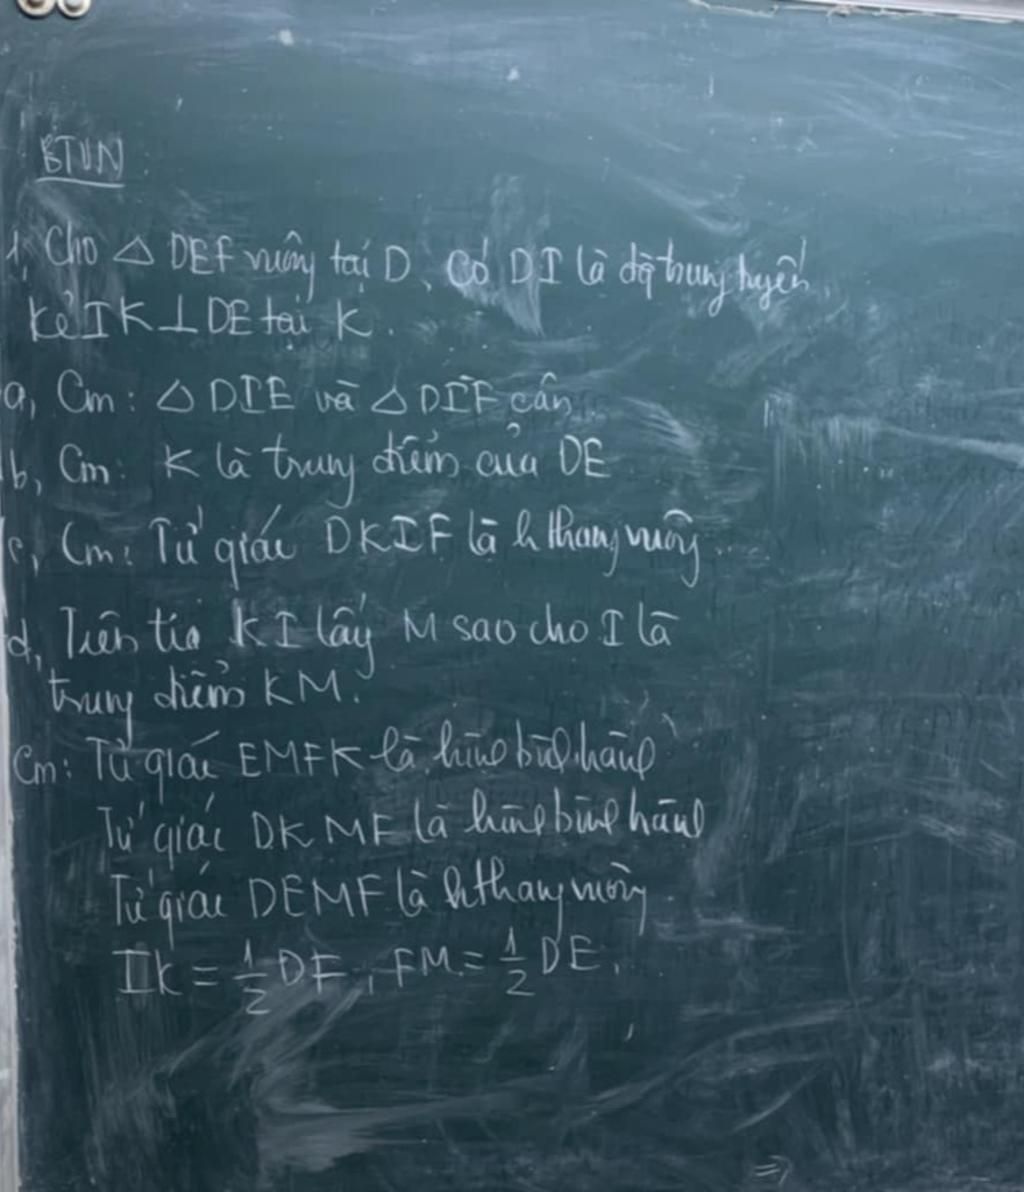 BTVN
1, Cho △ DEF vuông tại D, có DI là đg trung tuyến
Kẻ IK ⊥ DE tại K.
a, Cm: △ DIE và △ DIF cân
b, Cm: K là trung điểm của DE
c, Cm: Tứ giác DKIF là h thang vuông
d, Trên tia KI lấy M sao cho I là
trung điểm KM.
Cm: Tứ giác EMFK là hình bình hành
Tứ giác DKMF là hình bình hành
Tứ giác DEMF là h thang vuông
IK = 1/2 DF, FM = 1/2 DE.
⇒